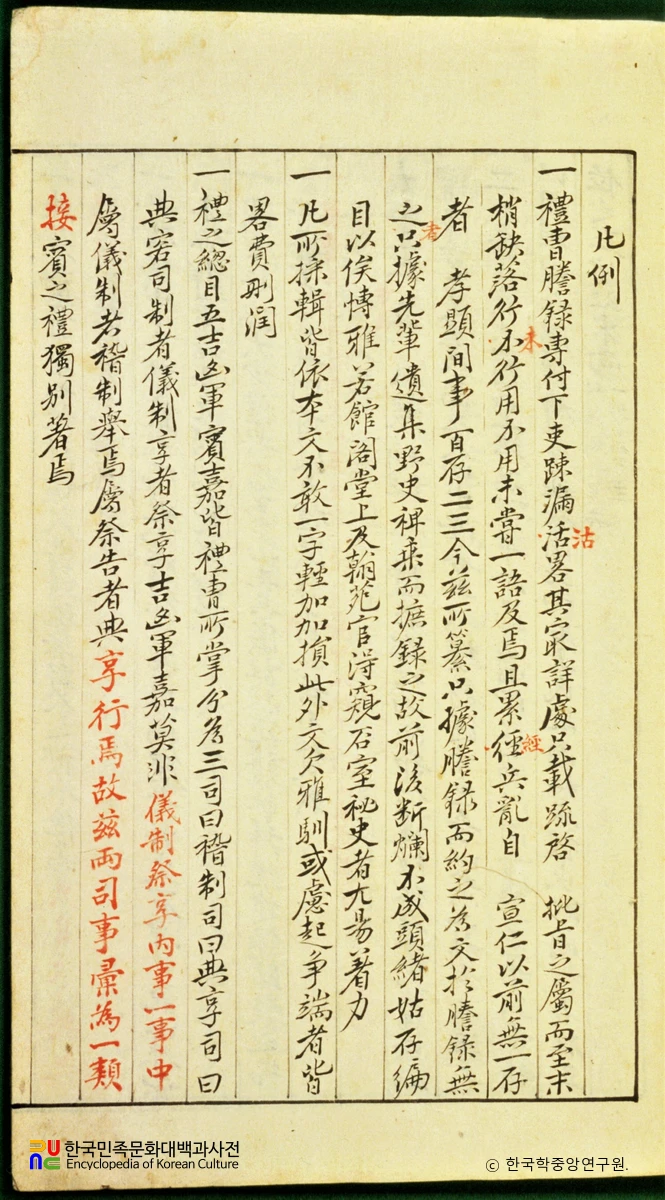 凡例
一禮曹謄録專付下吏踈漏活畧其㝡詳處只載疏啓 批旨之屬而至末
沽
梢缺落行不行用不用未甞一語及焉且累徑兵亂自 宣仁以前無一存
未
經
者 孝顯間事百存二三今兹所纂只據謄録而約之爲文於謄録無
之只據先輩遺集野史稗乘而摭録之故前後断爛不成頭緒姑存編
者
目以俟愽雅若館閣堂上及翰苑官淂窺石室秘史者尤易著力
一凡所採輯皆依本文不敢一字輕加加損此外文欠雅馴或慮起争端者皆
畧費刪潤
一禮之緫目五吉凶軍賓嘉皆禮曹所掌分爲三司曰稽制司曰典享司曰
典客司制者儀制享者祭享吉凶軍嘉莫非儀制祭享内事一事中
屬儀制者稽制舉焉屬祭告者典享行焉故兹兩司事彙為一類
接賓之禮獨别著焉
한국민족문화대백과사전
Encyclopedia of Korean Culture
© 한국학중앙연구원.